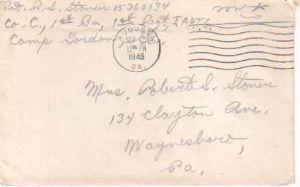 Pvt. R.S. Stoner 15360134
Co. C, 1st Bn, 1st Regt, IARTC
Camp Gordon
AUGUSTA
12 PM
1945
GA.
Mrs. Robert S. Stoner
134 Clayton Ave.
Waynesboro,
Pa.